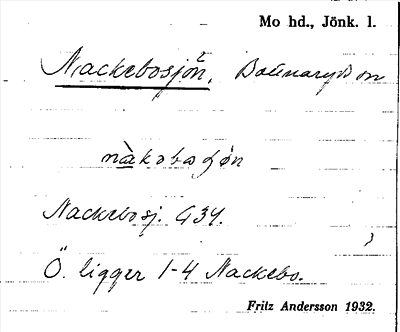 Mo hd., Jönk. l.
Nackebosjön, Bottnaryds sn
nàkəbəʃøn
Nackebosj. G34.
Ö. ligger 1-4 Nackebo.
Fritz Andersson 1932.